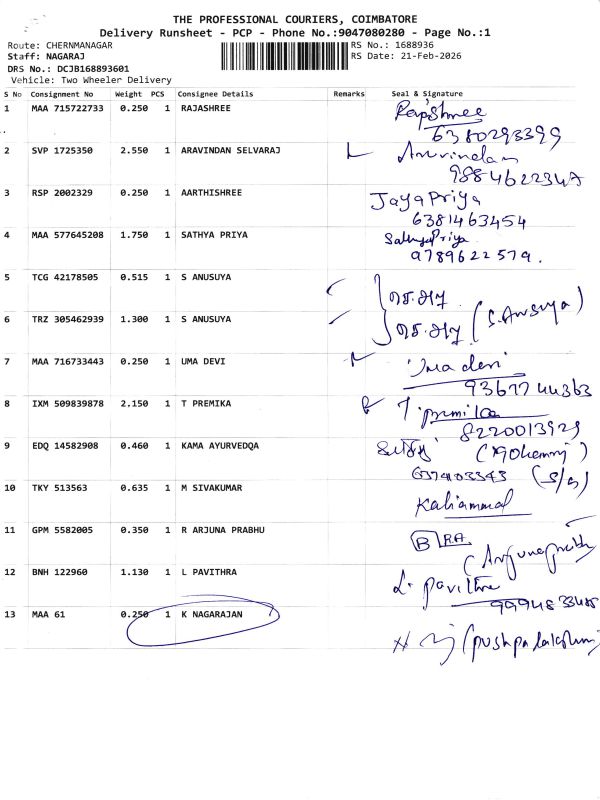 THE PROFESSIONAL COURIERS, COIMBATORE
Delivery Runsheet - PCP - Phone No.:9047080280 - Page No.:1
Route: CHERNMANAGAR RS No.: 1688936
Staff: NAGARAJ RS Date: 21-Feb-2026
DRS No.: DCJB168893601
Vehicle: Two Wheeler Delivery
S No Consignment No Weight PCS Consignee Details Remarks Seal & Signature
1 MAA 715722733 0.250 1 RAJASHREE Rajashree
6380293399
2 SVP 1725350 2.550 1 ARAVINDAN SELVARAJ Aravindan
9884622347
3 RSP 2002329 0.250 1 AARTHISHREE Jaya Priya
6381463454
4 MAA 577645208 1.750 1 SATHYA PRIYA Sathya Priya
9789622579.
5 TCG 42178505 0.515 1 S ANUSUYA
6 TRZ 305462939 1.300 1 S ANUSUYA (S. Anusuya)
7 MAA 716733443 0.250 1 UMA DEVI Uma devi
9367744363
8 IXM 509839878 2.150 1 T PREMIKA T. premika
8220013929
9 EDQ 14582908 0.460 1 KAMA AYURVEDQA
6374103343 (S/g)
10 TKY 513563 0.635 1 M SIVAKUMAR Kaliammal
11 GPM 5582005 0.350 1 R ARJUNA PRABHU B R.A.
12 BNH 122960 1.130 1 L PAVITHRA L. pavithra
9994833485
13 MAA 61 0.250 1 K NAGARAJAN (pushpalakshmi)